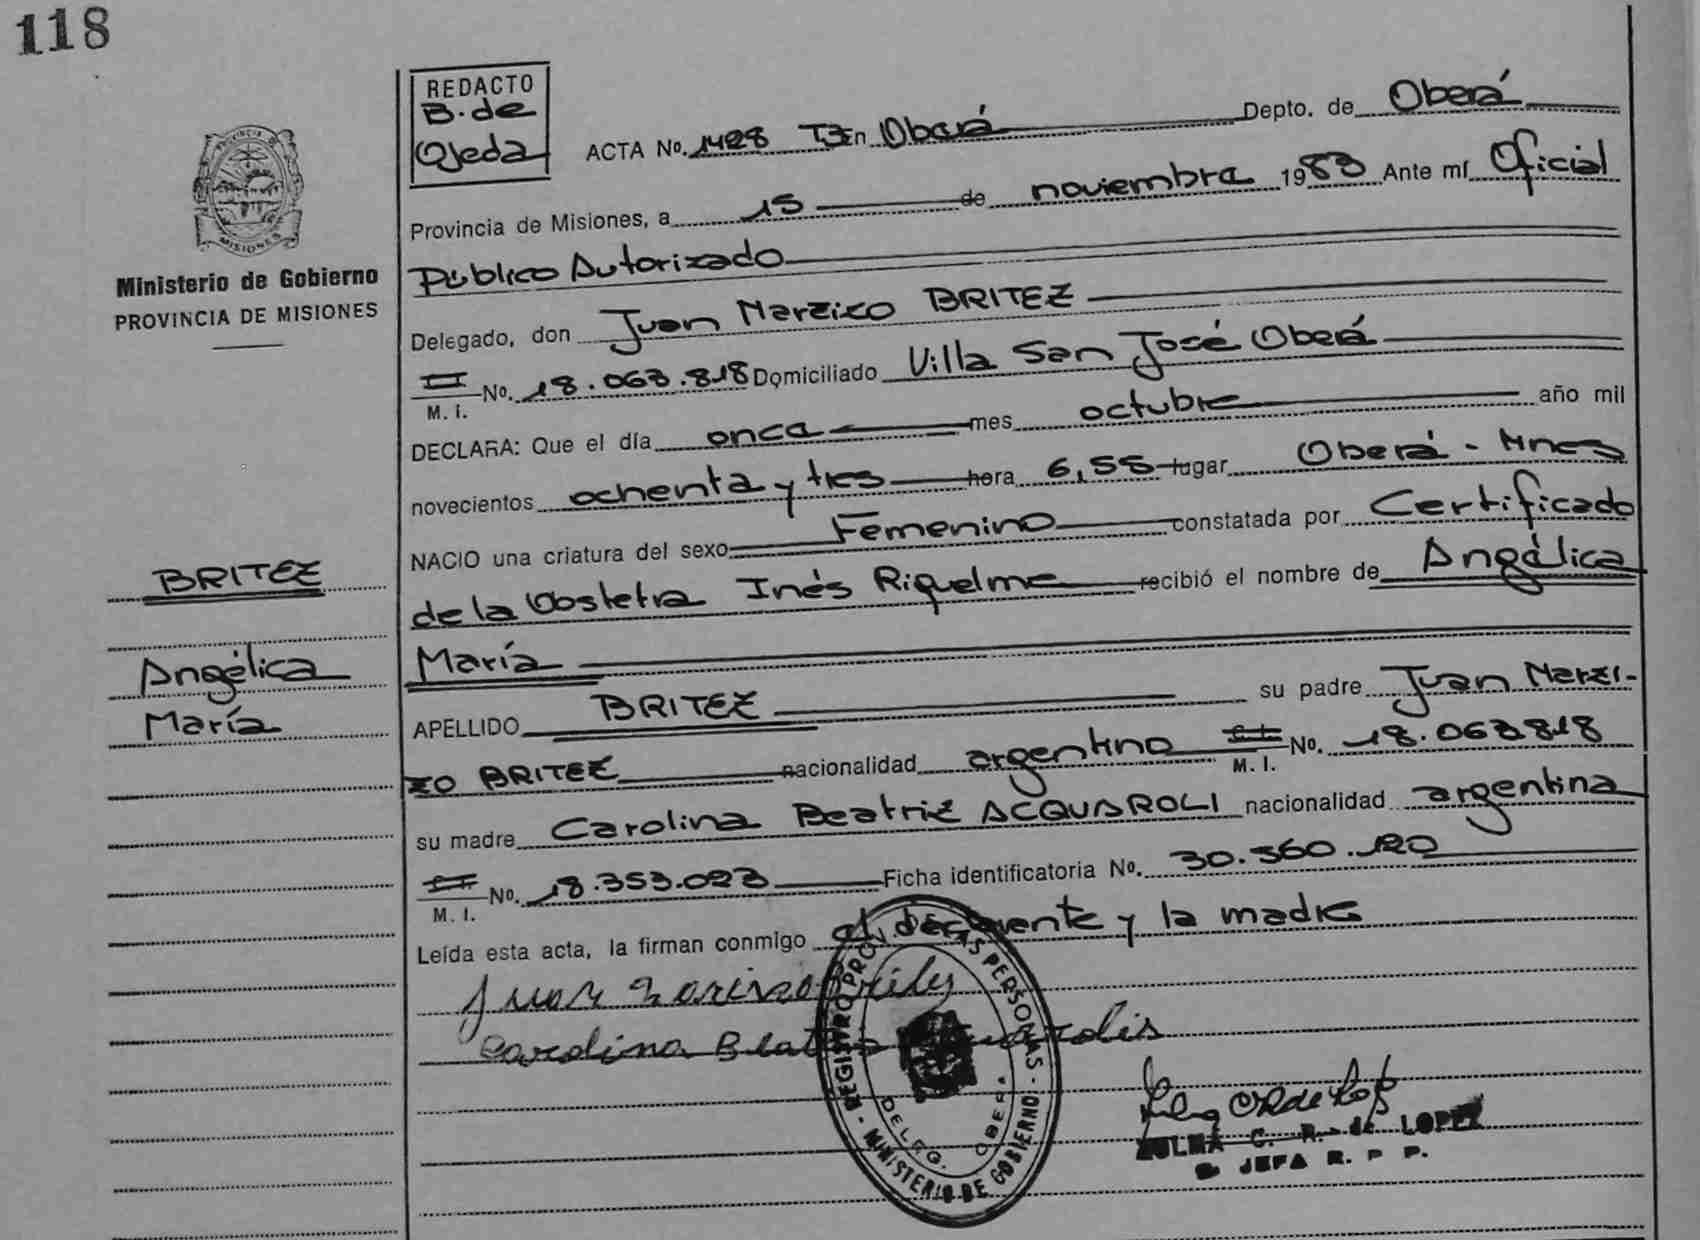 118
REDACTO
B. de
Ojeda
ACTA No. 1428 TB En Oberá Depto. de Oberá
Provincia de Misiones, a 15 de noviembre 1983 Ante mí Oficial
Público Autorizado
Delegado, don Juan Marzizo BRITEZ
M. I. No. 18.063.818 Domiciliado Villa San José Oberá
DECLARA: Que el día once mes octubre año mil
novecientos ochenta y tres hora 6,55 lugar Oberá - Mnes
NACIO una criatura del sexo Femenino constatada por Certificado
de la Obstetra Inés Riquelme recibió el nombre de Angélica
María
APELLIDO BRITEZ su padre Juan Marzi-
zo BRITEZ nacionalidad argentino M. I. No. 18.063.818
su madre Carolina Beatriz ACQUAROLI nacionalidad argentina
M. I. No. 18.353.023 Ficha identificatoria No. 30.560.120
Leída esta acta, la firman conmigo el declarente y la madre
Juan
Carolina
ZULMA C. R. de LOPEZ
JEFA R. P P.
PROVINCIA
MISIONES
Ministerio de Gobierno
PROVINCIA DE MISIONES
BRITEZ
Angélica
María
REGISTRO PRO AS PERSONAS - MINISTERIO DE GOBIERNO -
DELEG. OBERA